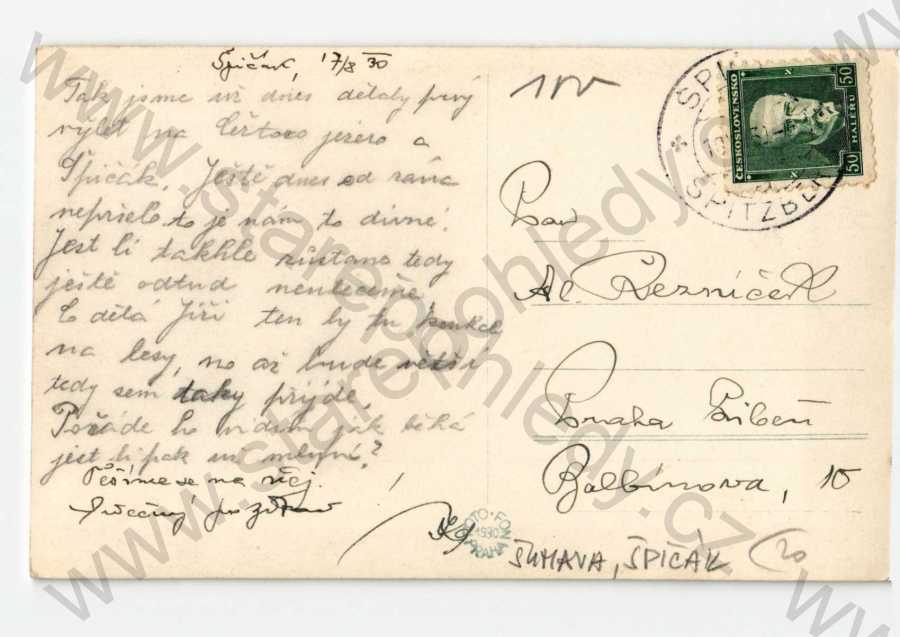 Špičák, 17/8 30
Tak jsme už dnes dělaly prvý
výlet na Čertovo jezero a
Špičák. Ještě dnes od rána
nepršelo to je nám to divné.
Jest li takhle zůstane tedy
ještě odtud neutečeme.
Co dělá Jiří ten by tu koukal
na lesy, no až bude větší
tedy sem taky přijde.
Pořáde ho vidím jak běhá
jest li pak už mluví?
Těšíme se na něj.
Srdečný pozdrav
ŠPI
* ŠPITZBE
ČESKOSLOVENSKO
50 HALÉRU 50
Pan
Al. Řezníček
Praha Libeň
Balbínova, 10
FOTO-FON
1930
PRAHA
ŠUMAVA, ŠPIČÁK 20
www.starepohledy.cz